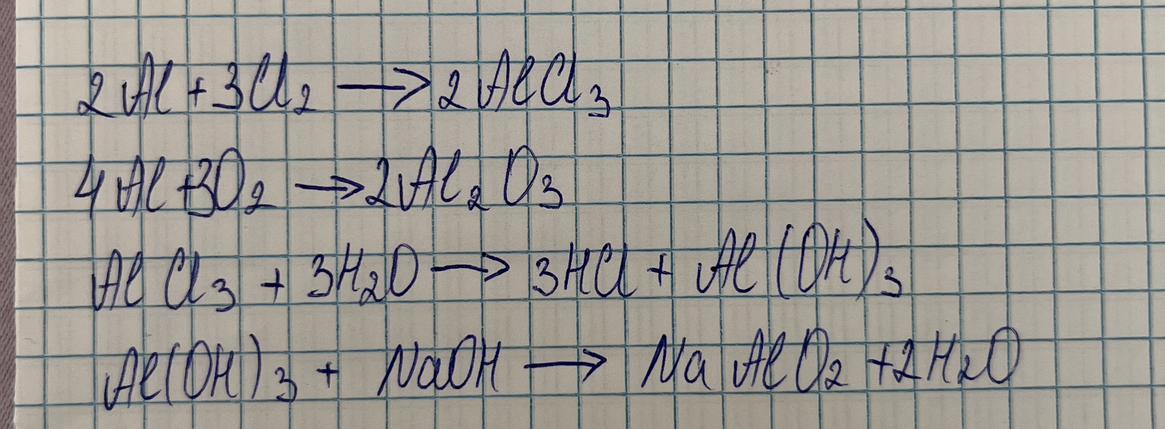 2Al + 3Cl₂ → 2AlCl₃
4Al + 3O₂ → 2Al₂O₃
AlCl₃ + 3H₂O → 3HCl + Al(OH)₃
Al(OH)₃ + NaOH → NaAlO₂ + 2H₂O